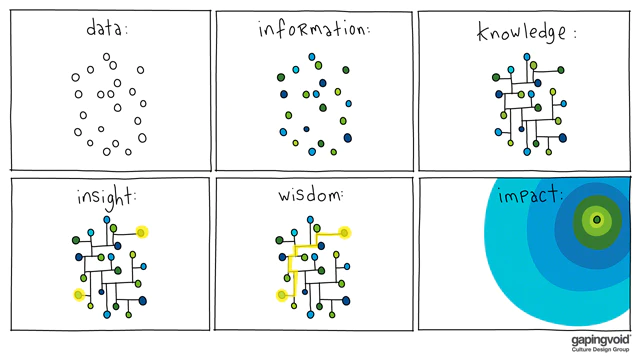 data:
information:
knowledge:
insight:
wisdom:
impact:
gapingvoid®
Culture Design Group